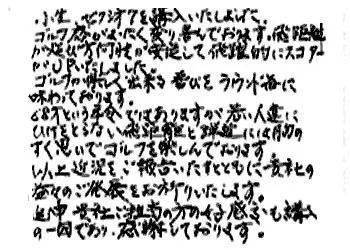 小生、ゼクシオ7を購入いたしました。
ゴルフ感がまったく変り喜んでおります。飛距離
が延び方向性が安定して飛躍的にスコアー
がUPいたしました。
ゴルフが楽しく出来る喜びをラウンド毎に
味わっております。
68才という年令ではありますが若い人達に
ひけをとらない飛距離と弾道には胸の
すく思いでゴルフを楽しんでおります
以上近況をご報告いたすとともに貴社の
益々のご発展をお祈りいたします。
追申 貴社ご担当の方の好感さも購入
の一因であり、感謝しております。